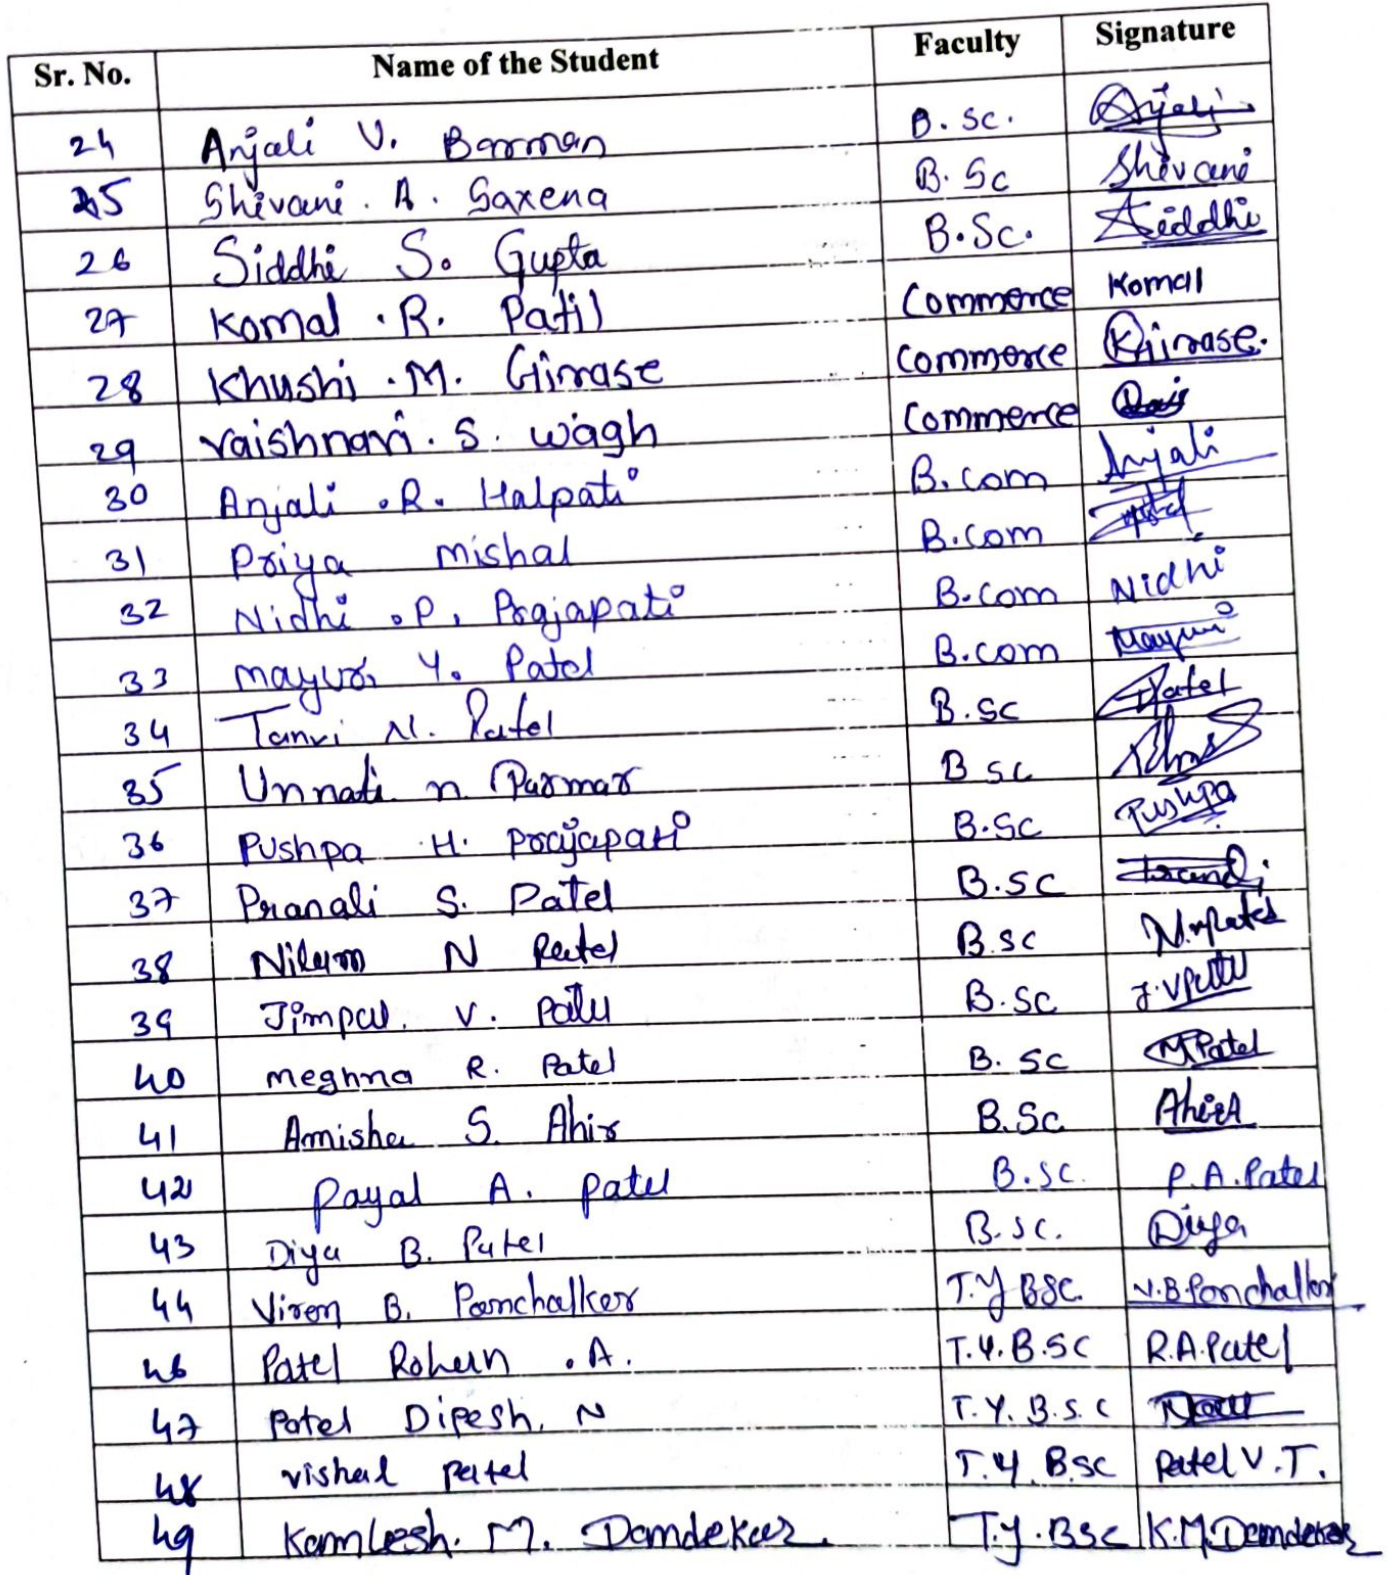 Sr. No. Name of the Student Faculty Signature
24 Anjali V. Barman B. Sc. Anjali
25 Shivani. A. Saxena B. Sc Shivani
26 Siddhi S. Gupta B.Sc. Siddhi
27 Komal . R. Patil Commerce Komal
28 Khushi . M. Girase Commerce Kgirase.
29 vaishnavi. S. wagh Commerce
30 Anjali . R. Halpati B. com Anjali
31 Priya mishal B.com
32 Nidhi . P. Prajapati B.com Nidhi
33 mayuri Y. Patel B.com Mayuri
34 Tanvi N. Patel B.SC Patel
35 Unnati n. Parmar B SC
36 Pushpa H. prajapati B.Sc Pushpa
37 Pranali S. Patel B.SC
38 Nilam N Patel B.SC N.N.Patel
39 Jimpal. V. Patel B.SC J.V Patel
40 meghna R. Patel B. SC M Patel
41 Amisha S. Ahir B.Sc.
42 Payal A. patel B.SC. P.A.Patel
43 Diya B. Patel B.SC. Diya
44 Viren B. Panchalkar T.Y BSC. V.B.Panchalkar
46 Patel Rohan . A. T.Y.B.SC R.A.Patel
47 Patel Dipesh. N T.Y. B.S.C
48 vishal patel T.Y. B.SC Patel V.T.
49 Kamlesh. M. Damdekar. T.Y.BSC K.M.Damdekar